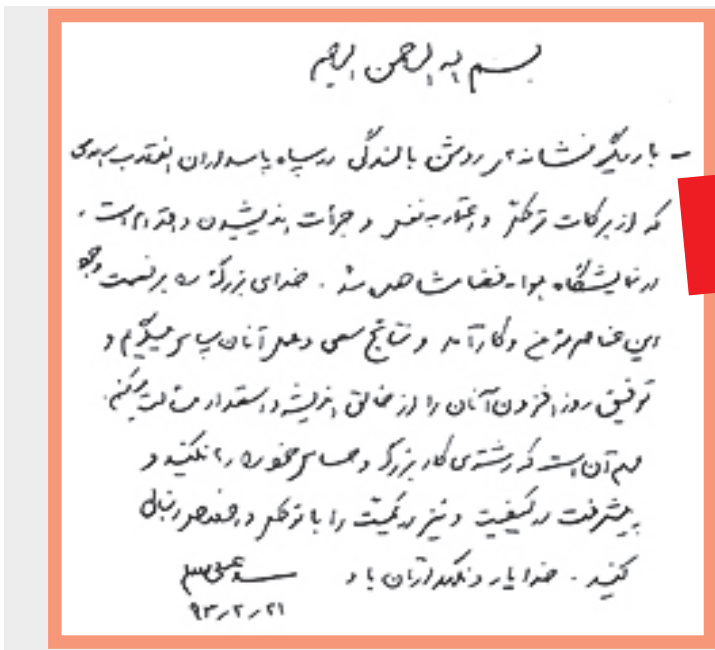 بسم الله الرحمن الرحیم
- بار دیگر نشانه‌های روشن بالندگی در سپاه پاسداران انقلاب اسلامی
که از برکات توکل و اعتماد به نفس و جرأت اندیشیدن و اقدام است،
در نمایشگاه هوا-فضا مشاهده شد. خدای بزرگ را بر نعمت وجود
این عناصر مؤمن و کارآمد و نتائج سعی و عمل آنان سپاس میگویم و
توفیق روزافزون آنان را از خالق اندیشه و استعداد مسألت میکنم.
مهم آن است که رشته‌ی کار بزرگ و حساس خود را رها نکنید و
پیشرفت در کیفیت و نیز در کمیّت را با توکل و اخلاص دنبال
کنید. خدا یار و نگهدارتان باد
سید علی
۹۳/۲/۲۱